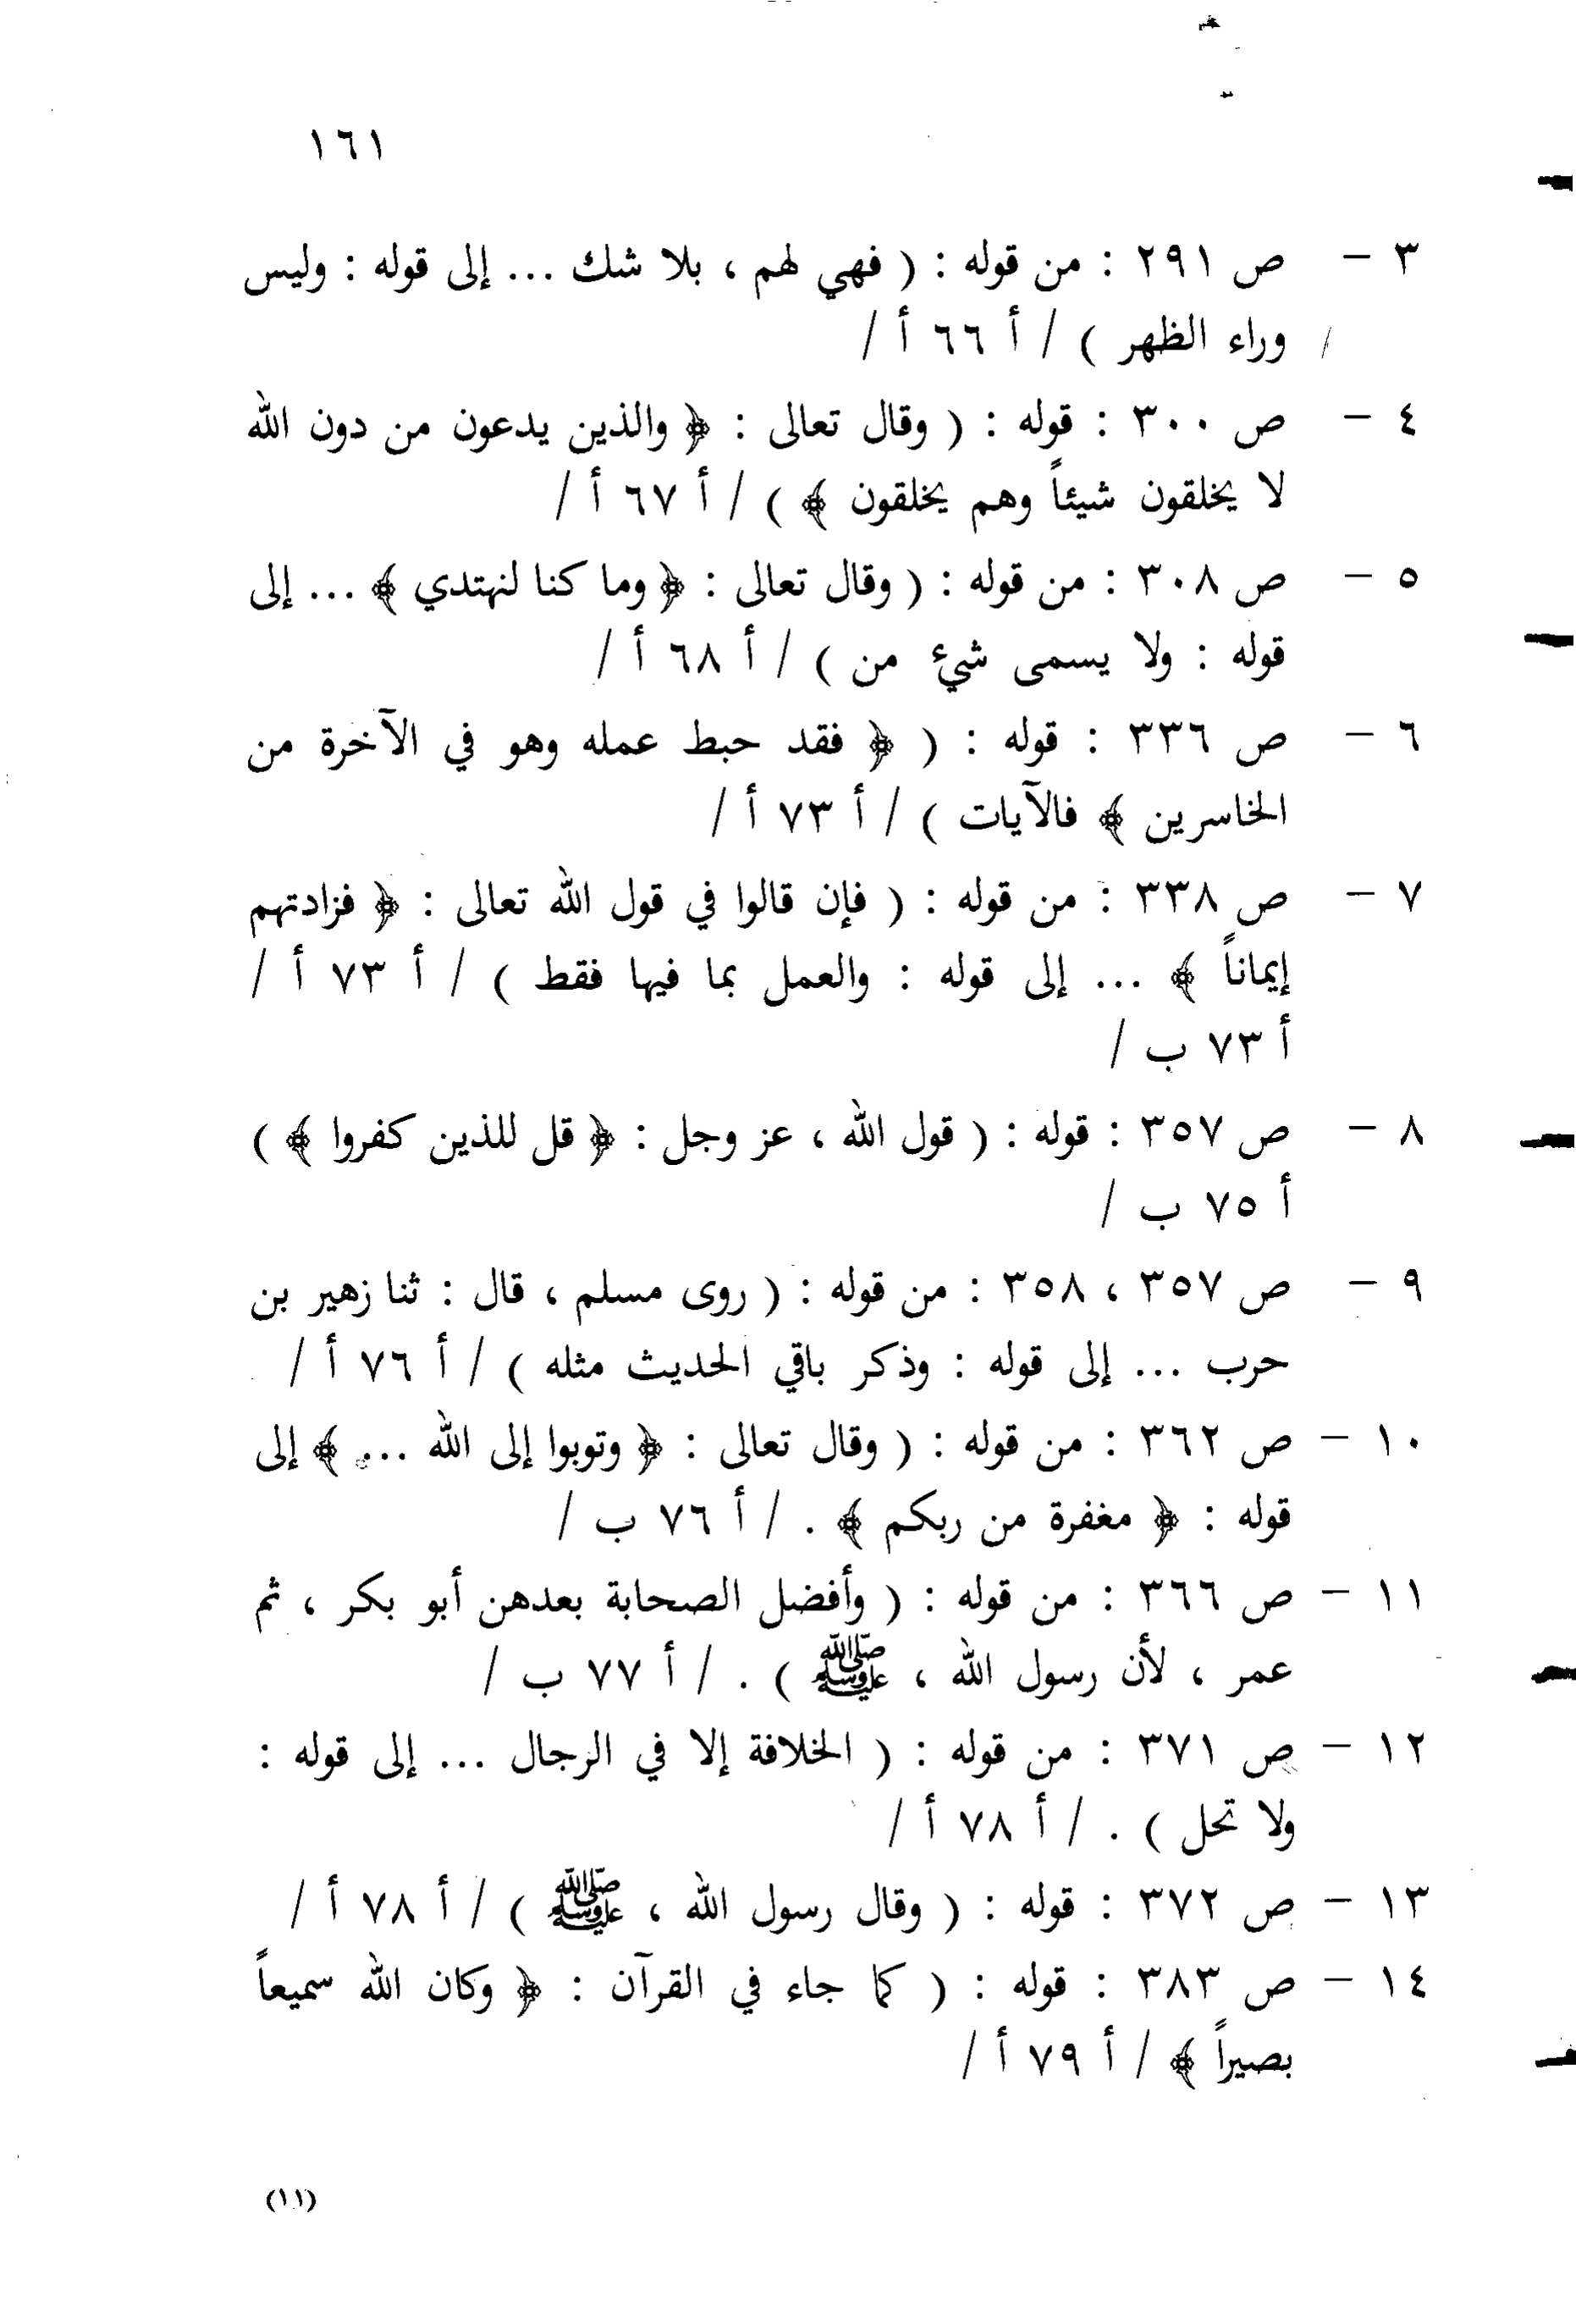 ١٦١
٣ – ص ٢٩١ : من قوله : ( فهي لهم ، بلا شك ... إلى قوله : وليس
وراء الظهر ) / أ ٦٦ أ /
٤ – ص ٣٠٠ : قوله : ( وقال تعالى : ﴿ والذين يدعون من دون الله
لا يخلقون شيئاً وهم يخلقون ﴾ ) / أ ٦٧ أ /
٥ – ص ٣٠٨ : من قوله : ( وقال تعالى : ﴿ وما كنا لنهتدي ﴾ ... إلى
قوله : ولا يسمى شيء من ) / أ ٦٨ أ /
٦ – ص ٣٣٦ : قوله : ( ﴿ فقد حبط عمله وهو في الآخرة من
الخاسرين ﴾ فالآيات ) / أ ٧٣ أ /
٧ – ص ٣٣٨ : من قوله : ( فإن قالوا في قول الله تعالى : ﴿ فزادتهم
إيماناً ﴾ ... إلى قوله : والعمل بما فيها فقط ) / أ ٧٣ أ /
أ ٧٣ ب /
٨ – ص ٣٥٧ : قوله : ( قول الله ، عز وجل : ﴿ قل للذين كفروا ﴾ )
أ ٧٥ ب /
٩ – ص ٣٥٧ ، ٣٥٨ : من قوله : ( روى مسلم ، قال : ثنا زهير بن
حرب ... إلى قوله : وذكر باقي الحديث مثله ) / أ ٧٦ أ /
١٠ – ص ٣٦٢ : من قوله : ( وقال تعالى : ﴿ وتوبوا إلى الله ... ﴾ إلى
قوله : ﴿ مغفرة من ربكم ﴾ . / أ ٧٦ ب /
١١ – ص ٣٦٦ : من قوله : ( وأفضل الصحابة بعدهن أبو بكر ، ثم
عمر ، لأن رسول الله ، ﷺ ) . / أ ٧٧ ب /
١٢ – ص ٣٧١ : من قوله : ( الخلافة إلا في الرجال ... إلى قوله :
ولا تحل ) . / أ ٧٨ أ /
١٣ – ص ٣٧٢ : قوله : ( وقال رسول الله ، ﷺ ) / أ ٧٨ أ /
١٤ – ص ٣٨٣ : قوله : ( كما جاء في القرآن : ﴿ وكان الله سميعاً
بصيراً ﴾ / أ ٧٩ أ /
(١١)